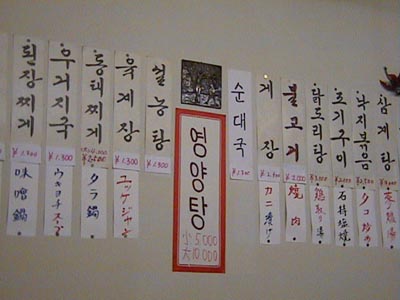 된장찌개
¥1,300
味噌鍋
우거지국
¥1,300
ウゴチスープ
동태찌개
¥2,500
タラ鍋
육개장
¥1,300
ユッケジャン
설농탕
¥1,300
영양탕
小 5,000
大 10,000
순대국
¥1,300
게장
カニ漬け
불고기
¥2,000
焼肉
닭도리탕
¥3,000
조기구미
石持塩焼
낙지볶음
¥2,500
タコ炒め
삼계탕